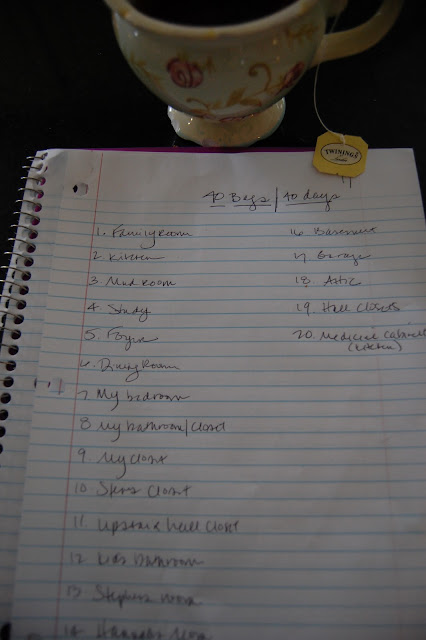 TWININGS
London
40 Bags | 40 days
1. Family room
2. Kitchen
3. Mud room
4. Study
5. Foyer
6. Dining Room
7. My bedroom
8 My bathroom/closet
9. My closet
10 closet
11 Upstairs hall closet
12 Kids bathroom
13 Stephens room
14 Hannahs room
16 Basement
17 Garage
18. Attic
19. Hall closets
20. Medicine cabinet
(kitchen)